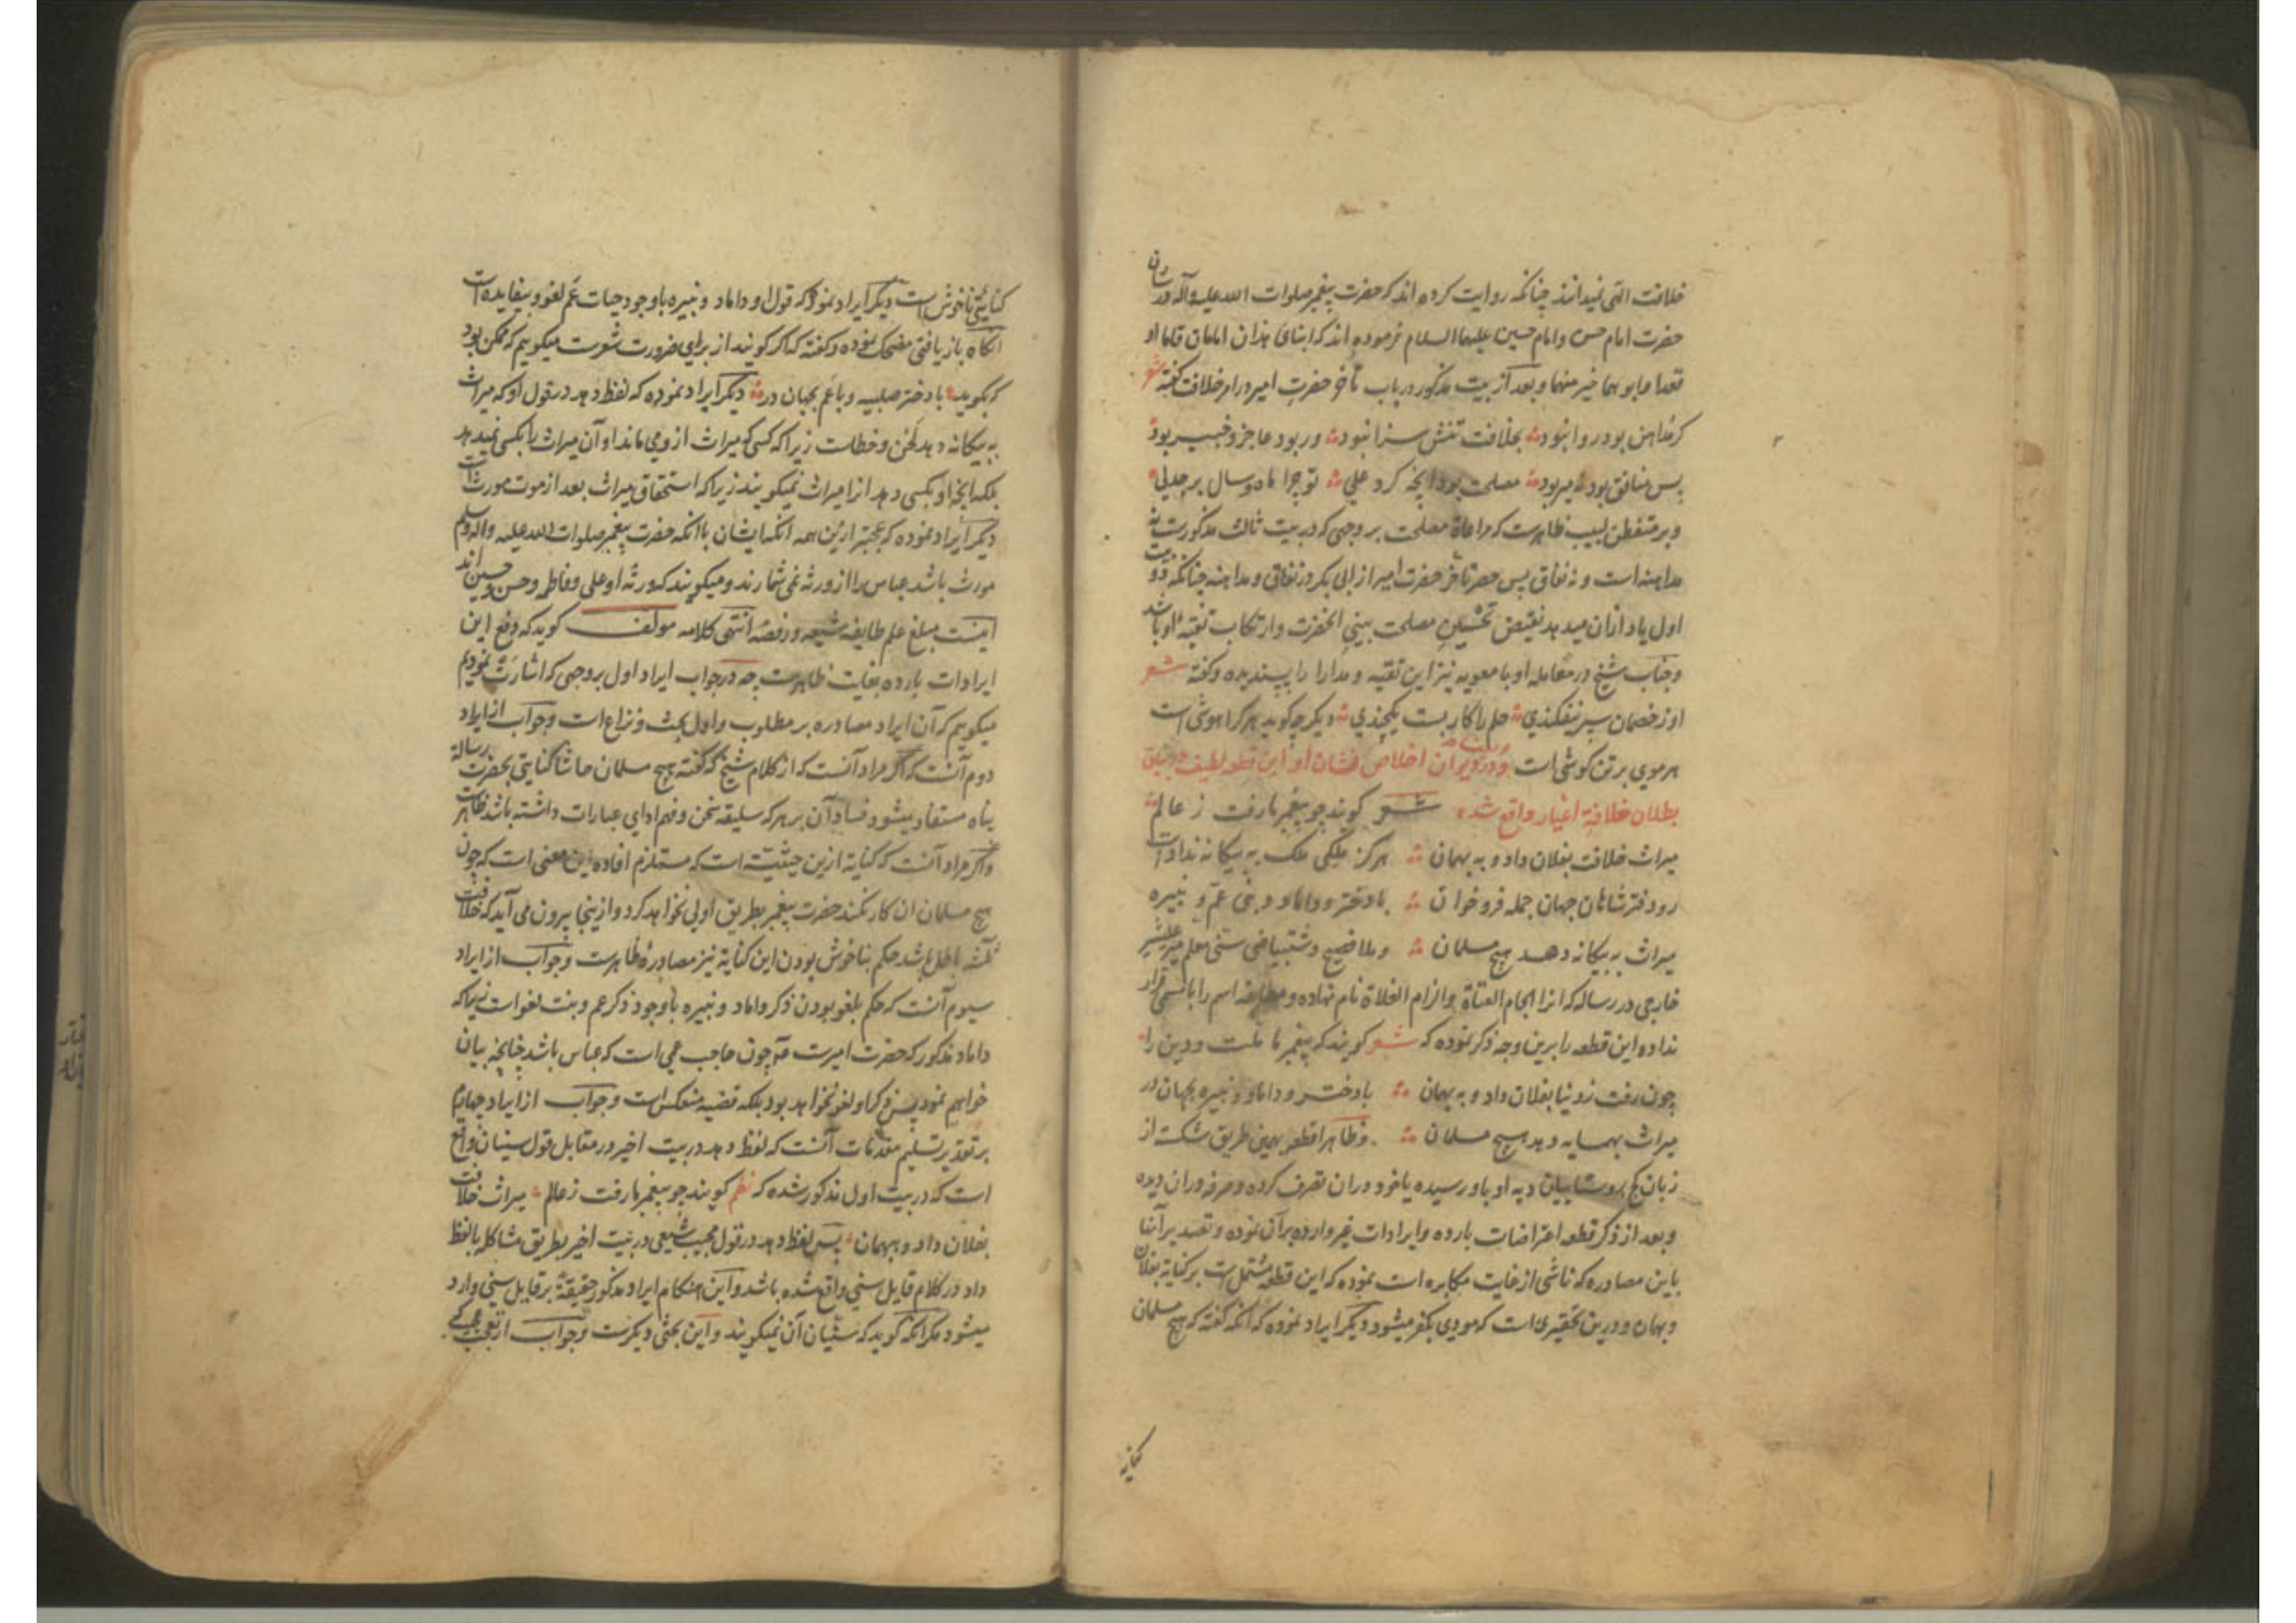 خلافت التی نمیدانند چنانکه روایت کرده اند که حضرت پیغمبر صلوات الله علیه وآله در شان
حضرت امام حسن و امام حسین علیهما السلام فرموده اند که ابنای هذان امامان قاما او
قعدا و ابوهما خیر منهما و بعد از بیت مذکور در باب تأخر حضرت امیر در امر خلافت گفته شعر
کر مداهن بود روا نبود بخلافت تنش سزا نبود ور بود عاجز و خبیر بود
پس منافق بود نه میر بود مصلحت بود آنچه کرد علی تو چرا ماه و سال بر جدلی
و بر متفطن لبیب ظاهرست که مراعاة مصلحت بر وجهی که در بیت ثالث مذکورست نه
مداهنه است و نه نفاق پس حصر تأخر حضرت امیر از ابی بکر در نفاق و مداهنه چنانکه دو بیت
اول یاد ازان میدهد نقیض تحسین مصلحت بینی آنحضرت و ارتکاب تقیه او باشد
و جناب شیخ در معامله او با معویه نیز این تقیه و مدارا را پسندیده و گفته شعر
او ز خصمان سپر نیفکندی حلم را کار بست یکچندی دیگر چه گوید هر کرا هوشی است
هر موی بر تن گوشی است و در دیوان اخلاص نشان او این قطعه لطیف در بیان
بطلان خلافة اغیار واقع شده شعر گویند چو پیغمبر ما رفت ز عالم
میراث خلافت بفلان داد و به بهمان هرگز ملکی ملک به بیگانه ندادست
رو دفتر شاهان جهان جمله فرو خوان با دختر و داماد و بنی عم و نبیره
میراث به بیگانه دهد هیچ مسلمان و ملا فصیح دشتبیاضی سنی معلم میر علیشیر
خارجی در رساله که انرا الجام العتاة و الزام الغلاة نام نهاده و مطابقه اسم را با مسمی قرار
نداده این قطعه را برین وجه ذکر نموده که شعر گویند که پیغمبر ما ملت و دین را
چون رفت ز دنیا بفلان داد و به بهمان با دختر و داماد و نبیره بجهان در
میراث بهمسایه دهد هیچ مسلمان و ظاهرا قطعه بهمین طریق شکسته از
زبان کج روستاییان دیه او باو رسیده یا خود دران تصرف کرده و صرفه دران دیده
و بعد از ذکر قطعه اعتراضات بارده و ایرادات غیر وارده بر آن نموده و تصدیر آنها
باین مصادره که ناشی از غایت مکابره است نموده که این قطعه مشتمل است بر کنایه بفلان
و بهمان و درین تحقیری است که مودی بکفر میشود دیگر ایراد نموده که آنکه گفته که هیچ مسلمان
کنایه
کنایتی ناخوش است دیگر ایراد نموده که قول او داماد و نبیره با وجود حیات عم لغو و بیفایده است
آنگاه باز یافتی مضحک نموده و گفته که اگر گویند از برای ضرورت شعرست میگوییم که ممکن بود
که بگوید با دختر صلبیه و با عم بجهان در دیگر ایراد نموده که لفظ دهد در قول او که میراث
به بیگانه دهد لحن و خطاست زیرا که کسی که میراث از وی ماند او آن میراث را بکسی نمیدهد
بلکه آنچه او بکسی دهد انرا میراث نمیگویند زیرا که استحقاق میراث بعد از موت مورث است
دیگر ایراد نموده که عجبتر ازین همه آنکه ایشان با آنکه حضرت پیغمبر صلوات الله علیه واله وسلم
مورث باشد عباس را از ورثه نمی شمارند و میگویند که ورثه او علی و فاطمه و حسن و حسین اند
اینست مبلغ علم طایفه شیعه و رفضه انتهی کلامه مولف گوید که دفع این
ایرادات بارده بغایت ظاهرست چه در جواب ایراد اول بر وجهی که اشارت نمودیم
میگوییم که آن ایراد مصادره بر مطلوب و اول بحث و نزاع است و جواب از ایراد
دوم آنست که اگر مراد آنست که از کلام شیخ که گفته هیچ مسلمان حاشا کنایتی بحضرت رسالة
پناه مستفاد میشود فساد آن بر هر که سلیقه سخن و فهم ادای عبارات داشته باشد ظاهرست
و اگر مراد آنست که کنایه ازین حیثیت است که مستلزم افاده این معنی است که چون
هیچ مسلمان ان کار نکند حضرت پیغمبر بطریق اولی نخواهد کرد و ازینجا بیرون می آید که خلافت
ثلثه باطل باشد حکم بناخوش بودن این کنایة نیز مصادره ظاهرست و جواب از ایراد
سیوم آنست که حکم بلغو بودن ذکر داماد و نبیره با وجود ذکر عم و بنت لغو است زیرا که
داماد مذکور که حضرت امیرست ع م چون حاجب عمی است که عباس باشد چنانچه بیان
خواهیم نمود پس ذکر او لغو نخواهد بود بلکه قضیه منعکس است و جواب از ایراد چهارم
بر تقدیر تسلیم مقدمات آنست که لفظ دهد در بیت اخیر در مقابل قول سنیان واقع
است که در بیت اول مذکور شده که نظم گویند چو پیغمبر ما رفت ز عالم میراث خلافت
بفلان داد و ببهمان پس لفظ دهد در قول مجیب شیعی در بیت اخیر بطریق مشاکله با لفظ
داد در کلام قایل سنی واقع شده باشد و این هنگام ایراد مذکور حقیقة بر قایل سنی وارد
میشود مگر آنکه گوید که سنیان آن نمیگویند و این بحثی دیگرست و جواب از تعجب